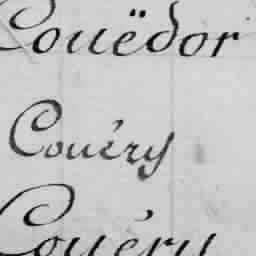 Couëdor
Couéry
Couéry